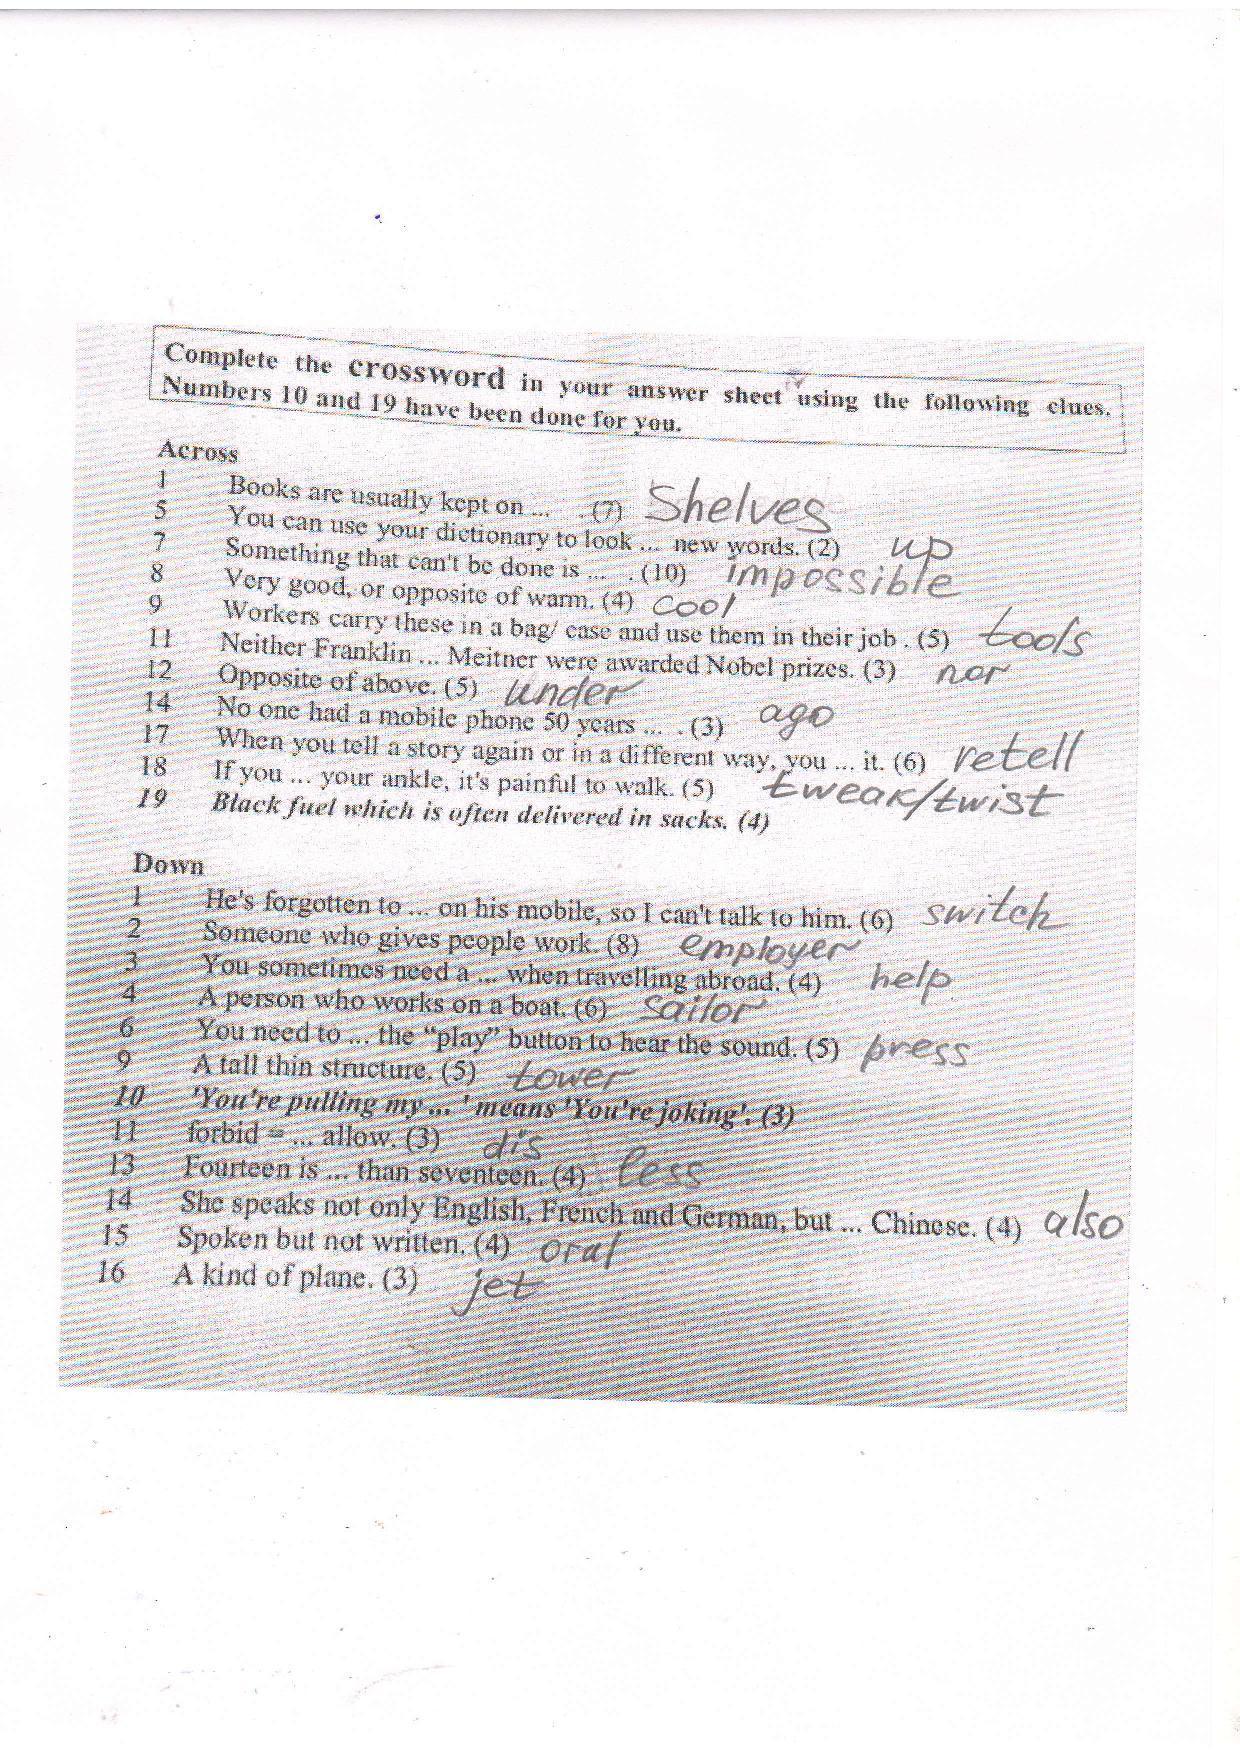 Complete the crossword in your answer sheet using the following clues.
Numbers 10 and 19 have been done for you.
Across
1 Books are usually kept on ... . (7) Shelves
5 You can use your dictionary to look ... new words. (2) up
7 Something that can't be done is ... . (10) impossible
8 Very good, or opposite of warm. (4) cool
9 Workers carry these in a bag/ case and use them in their job . (5) tools
11 Neither Franklin ... Meitner were awarded Nobel prizes. (3) nor
12 Opposite of above. (5) under
14 No one had a mobile phone 50 years ... . (3) ago
17 When you tell a story again or in a different way, you ... it. (6) retell
18 If you ... your ankle, it's painful to walk. (5) tweak/twist
19 Black fuel which is often delivered in sacks. (4)
Down
1 He's forgotten to ... on his mobile, so I can't talk to him. (6) switch
2 Someone who gives people work. (8) employer
3 You sometimes need a ... when travelling abroad. (4) help
4 A person who works on a boat. (6) sailor
6 You need to ... the “play” button to hear the sound. (5) press
9 A tall thin structure. (5) tower
10 'You're pulling my ... ' means 'You're joking'. (3)
11 forbid = ... allow. (3) dis
13 Fourteen is ... than seventeen. (4) less
14 She speaks not only English, French and German, but ... Chinese. (4) also
15 Spoken but not written. (4) oral
16 A kind of plane. (3) jet